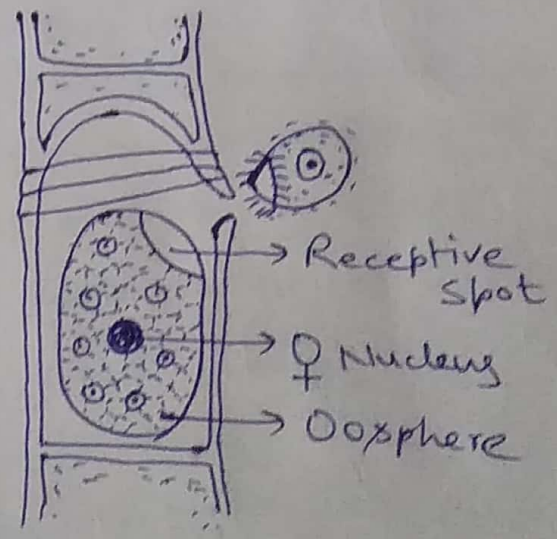 Receptive
Spot
♀ Nucleus
Oosphere